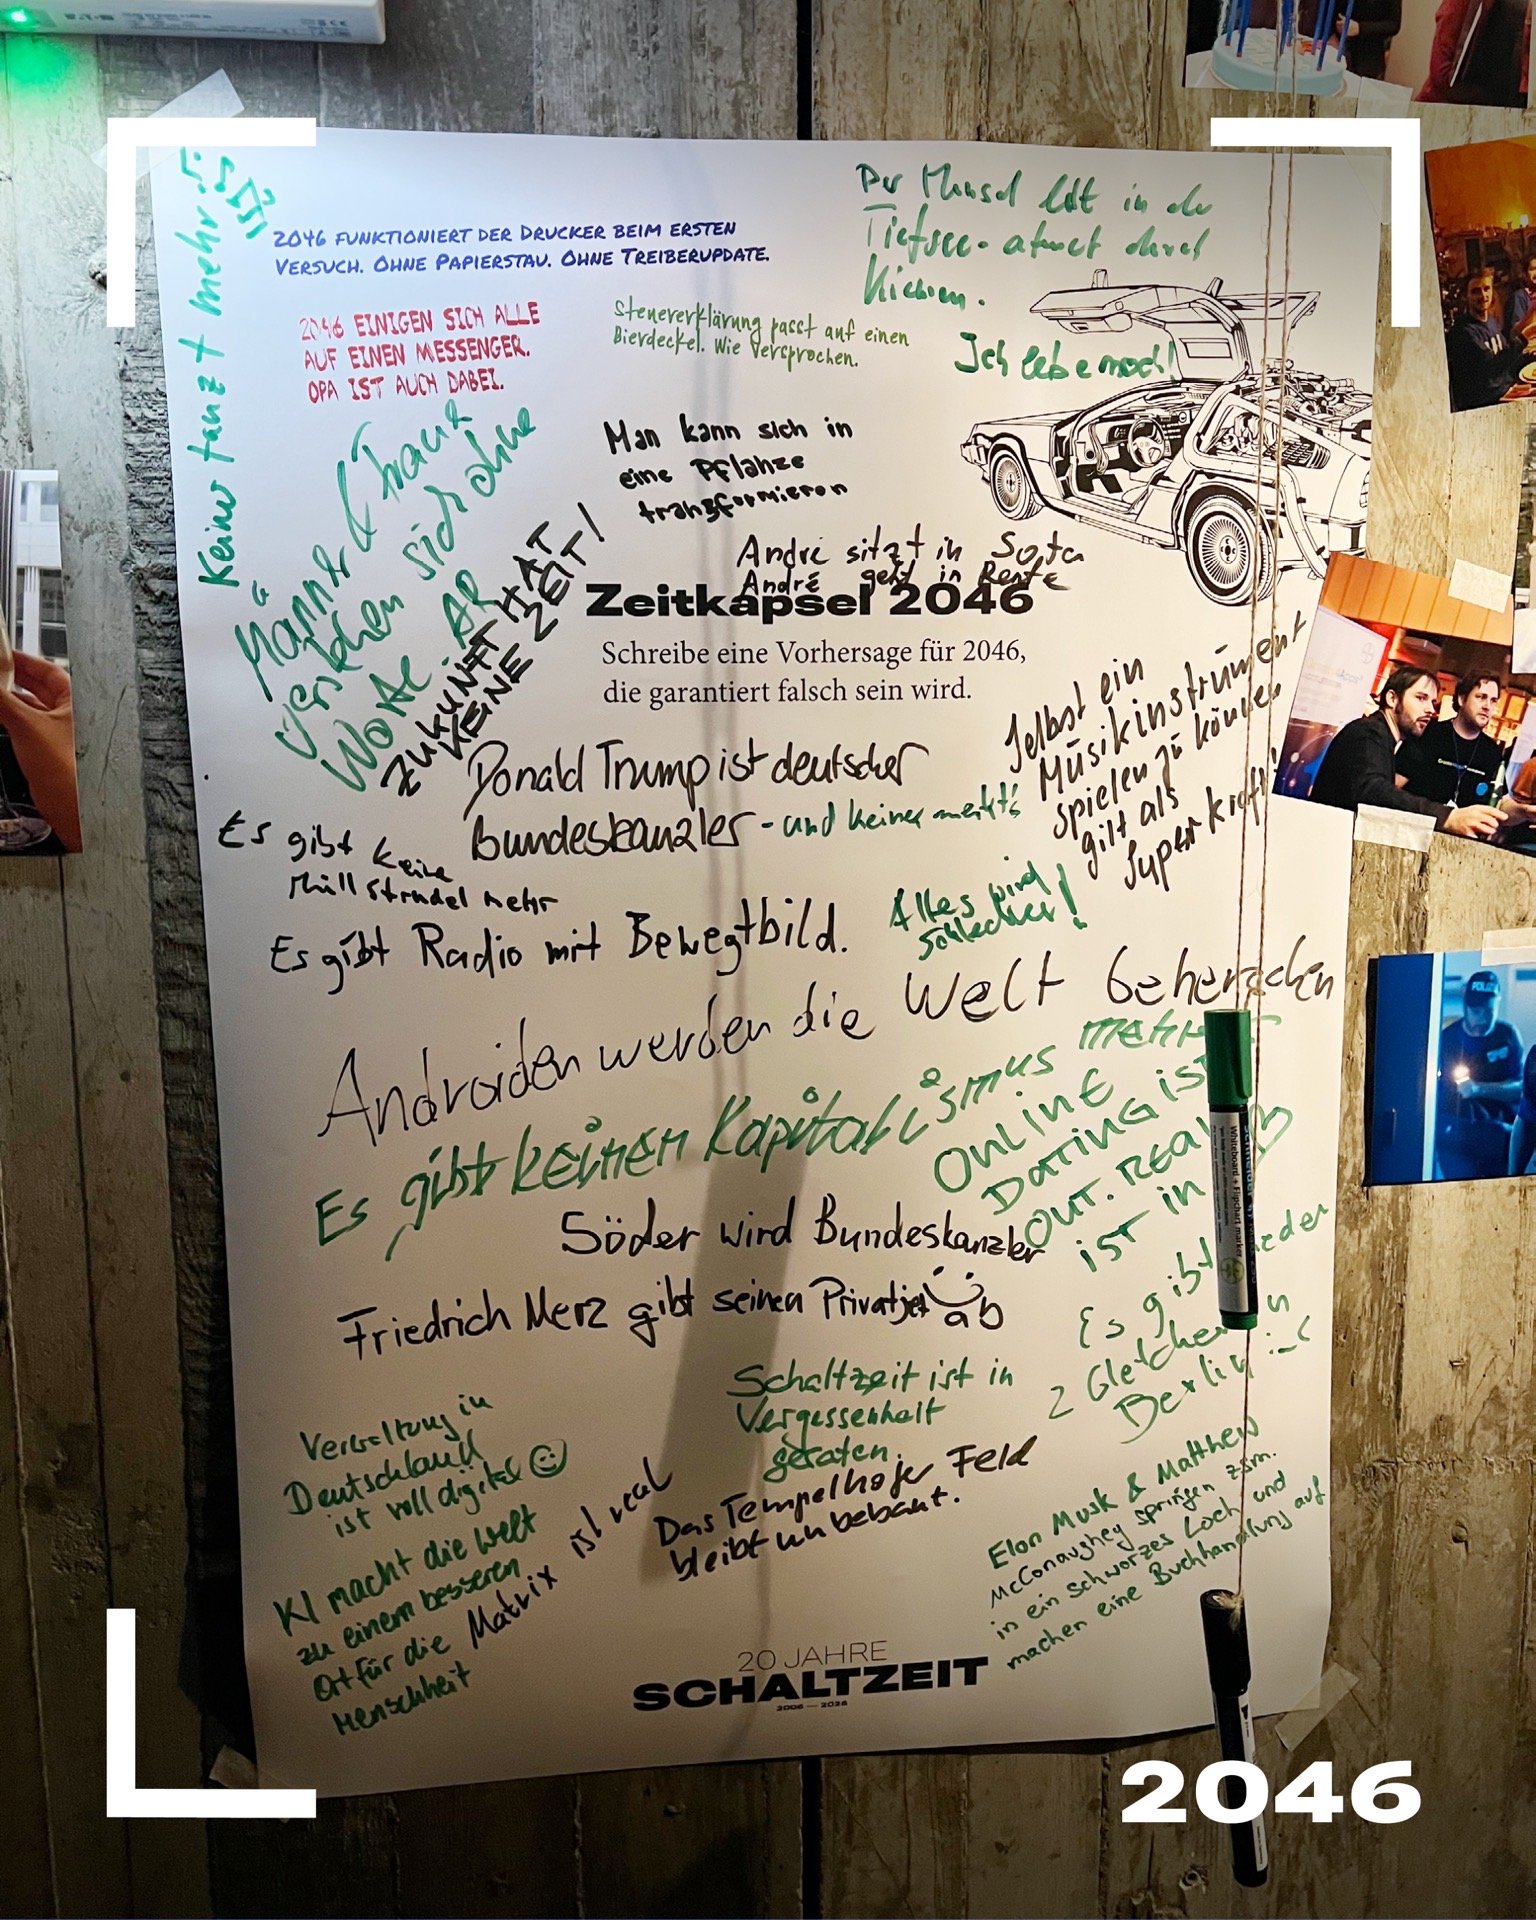 Keiner tanzt mehr!
2046 FUNKTIONIERT DER DRUCKER BEIM ERSTEN
VERSUCH. OHNE PAPIERSTAU. OHNE TREIBERUPDATE.
Der Mensch lebt in der
Tiefsee - atmet durch
Kiemen.
2046 EINIGEN SICH ALLE
AUF EINEN MESSENGER.
OPA IST AUCH DABEI.
Steuererklärung passt auf einen
Bierdeckel. Wie versprochen.
Ich lebe noch!
Männer & Frauen
verstehen sich ohne
Worte
ZUKUNFT HAT
KEINE ZEIT!
Man kann sich in
eine Pflanze
transformieren
André sitzt in
André geht in Rente
Zeitkapsel 2046
Schreibe eine Vorhersage für 2046,
die garantiert falsch sein wird.
Selbst ein
Musikinstrument
spielen zu können
gilt als
Superkraft!
Donald Trump ist deutscher
Bundeskanzler - und keiner merkt's
Es gibt keine
Müllstrudel mehr
Alles wird
schlechter!
Es gibt Radio mit Bewegtbild.
Androiden werden die Welt beherschen
Es gibt keinen Kapitalismus mehr
ONLINE
DATING IST
OUT. REAL
IST IN
Söder wird Bundeskanzler
Friedrich Merz gibt seinen Privatjet ab
Es gibt wieder
2 Gletcher in
Berlin :-(
Schaltzeit ist in
Vergessenheit
geraten.
Verwaltung in
Deutschland
ist voll digital
KI macht die Welt
zu einem besseren
Ort für die
Menschheit
Matrix ist real
Das Tempelhofer Feld
bleibt unbebaut.
Elon Musk & Matthew
McConaughey springen zsm.
in ein schwarzes Loch und
machen eine Buchhandlung auf
20 JAHRE
SCHALTZEIT
2006 — 2026
Whiteboard + Flipchart marker
POLIZ
2046